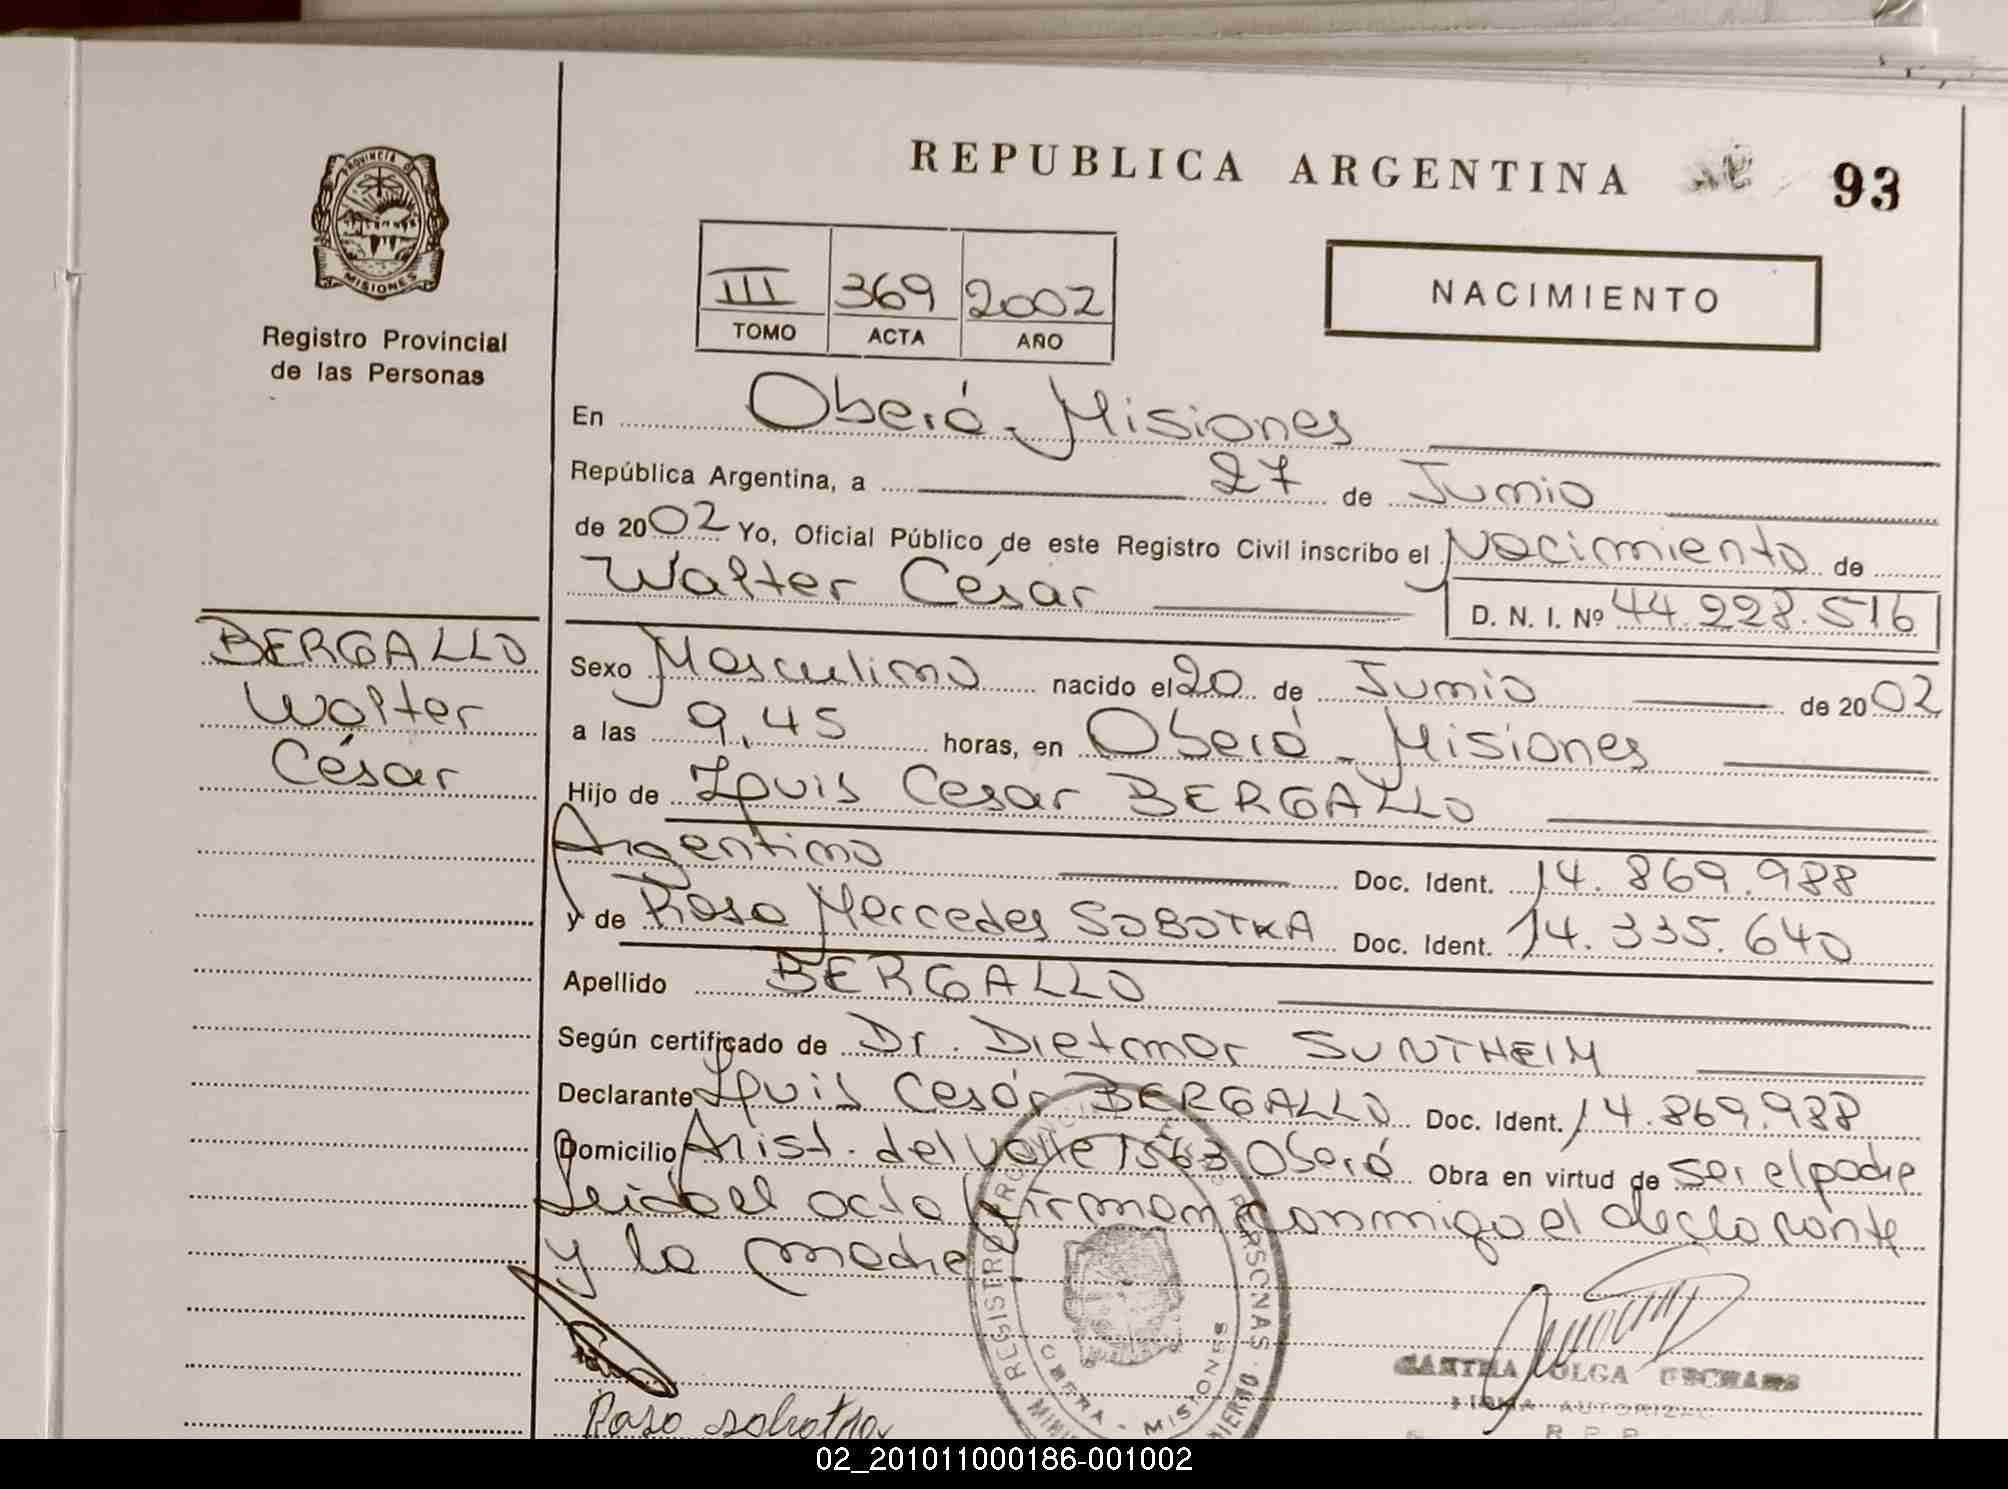 REPUBLICA ARGENTINA 93
PROVINCIA D
MISIONES
Registro Provincial
de las Personas
III 369 2002
TOMO ACTA AÑO
NACIMIENTO
En Oberá - Misiones
República Argentina, a 27 de Junio
de 2002 Yo, Oficial Público de este Registro Civil inscribo el Nacimiento de
Walter César
D. N. I. Nº 44.228.516
BERGALLO
Walter
César
Sexo Masculino nacido el 20 de Junio de 2002
a las 9,45 horas, en Oberá - Misiones
Hijo de Luis Cesar BERGALLO
Argentino Doc. Ident. 14.869.988
y de Rosa Mercedes SOBOTKA Doc. Ident. 14.335.640
Apellido BERGALLO
Según certificado de Dr. Dietmar SUNTHEIM
Declarante Luis Cesár BERGALLO Doc. Ident. 14.869.988
Domicilio Arist. del Valle 1563 Oberá Obra en virtud de ser el padre
Leido el acta firman conmigo el declarante
y la madre
REGISTRO PERSONAS
OBERA - MISIONES
OLGA
Rosa Sobotka
02_201011000186-001002